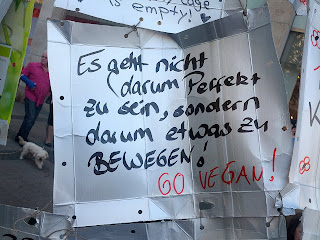 cage
is empty!
Es geht nicht
darum Perfekt
zu sein, sondern
darum etwas zu
BEWEGEN!
GO VEGAN!